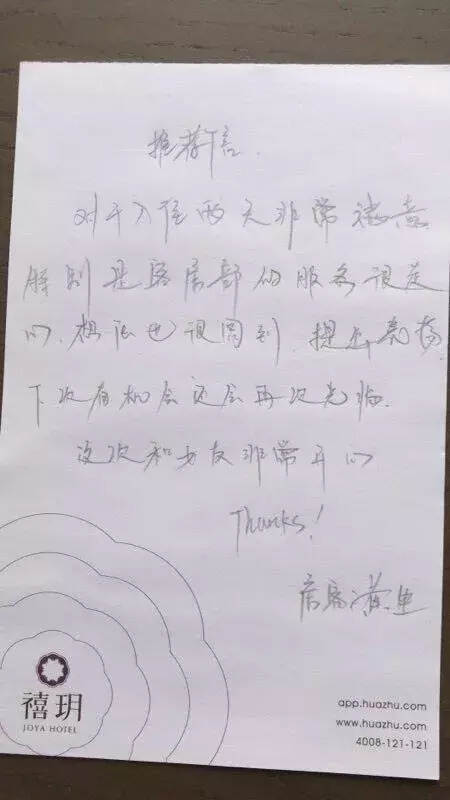 推荐信.
对于入住两天非常满意
特别是客房部的服务很是
心.想法也很周到.提出表扬
下次有机会还会再次光临.
这次和女友非常开心
Thanks!
房客
禧玥
JOYA HOTEL
app.huazhu.com
www.huazhu.com
4008-121-121